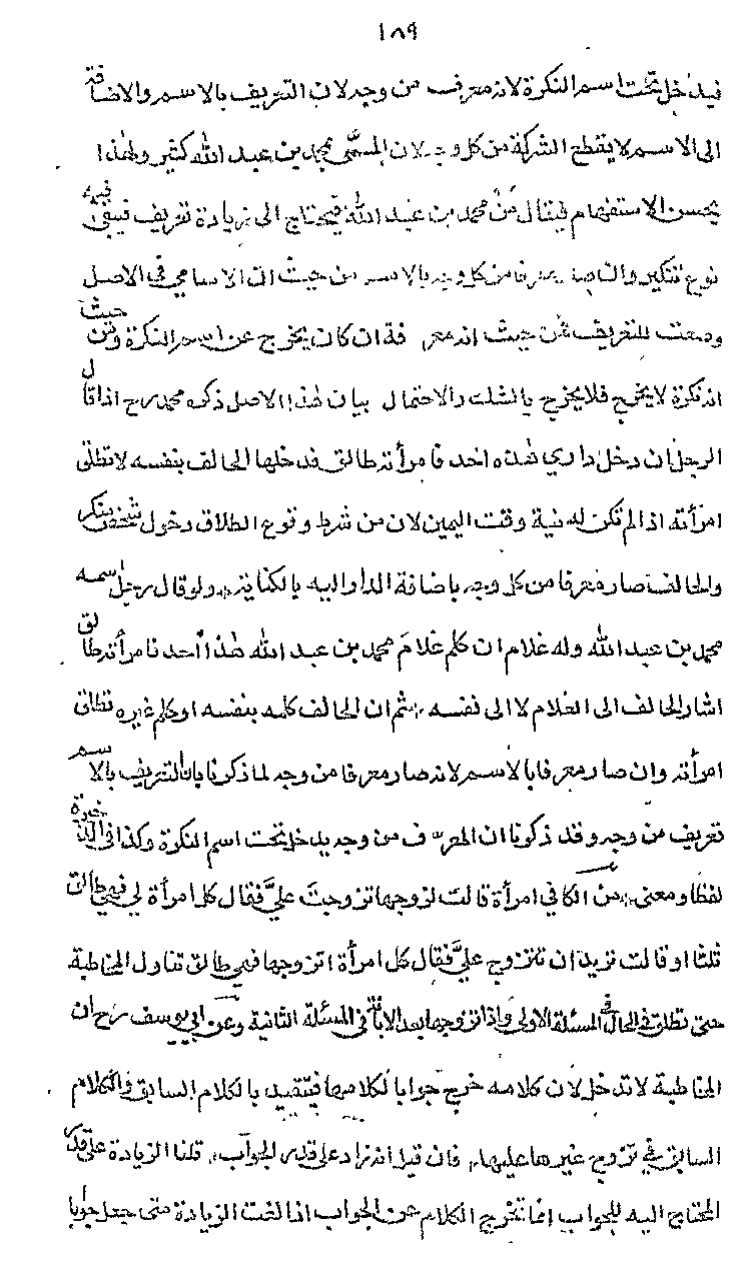 ١٨٩
فيدخل تحت اسم النكرة لانه معرف من وجه لان التعريف بالاسم والاضافة
الى الاسم لا يقطع الشركة من كل وجه لان المسمى محمد بن عبد الله كثير ولهذا
يحسن الاستفهام فيقال من محمد بن عبد الله فيحتاج الى زيادة تعريف فيبقى فيه
نوع تنكير وان صار معرفا من كل وجه بالاسم من حيث ان الاسامي في الاصل
وضعت للتعريف فمن حيث انه معرفة ان كان يخرج عن اسم النكرة ومن حيث
انه نكرة لا يخرج فلا يخرج بالشك والاحتمال بيان هذا الاصل ذكره محمد رح اذا قال
الرجل ان دخل داري هذه احد فامرأته طالق فدخلها الحالف بنفسه لا تطلق
امرأته اذا لم تكن له نية وقت اليمين لان من شرط وقوع الطلاق دخول شخص منكر
والحالف صار معرفا من كل وجه باضافة الدار اليه بالكناية ولو قال رجل اسمه
محمد بن عبد الله وله غلام ان كلم غلام محمد بن عبد الله هذا احد فامرأته طالق
اشار الحالف الى الغلام لا الى نفسه ثم ان الحالف كلمه بنفسه او كلم غيره تطلق
امرأته وان صار معرفا بالاسم لانه صار معرفا من وجه لما ذكرنا بان التعريف بالاسم
تعريف من وجه وقد ذكرنا ان المعرف من وجه يدخل تحت اسم النكرة وكذا في الذخيرة
لفظا ومعنى من الكافي امرأة قالت لزوجها تزوجت عليّ فقال كل امرأة لي فهي طالق
ثلثا او قالت تريد ان تتزوج عليّ فقال كل امرأة اتزوجها فهي طالق تناول المخاطبة
حتى تطلق في الحال في المسئلة الاولى واذا تزوجها بعد الابانة في المسئلة الثانية وعن ابي يوسف رح ان
المخاطبة لا تدخل لان كلامه خرج جوابا لكلامها فيتقيد بالكلام السابق والكلام
السابق في تزوج غيرها عليها فان قيل انه زاد على قدر الجواب قلنا الزيادة على قدر
المحتاج اليه للجواب انما تخرج الكلام عن الجواب اذا لغت الزيادة متى جعل جوابا